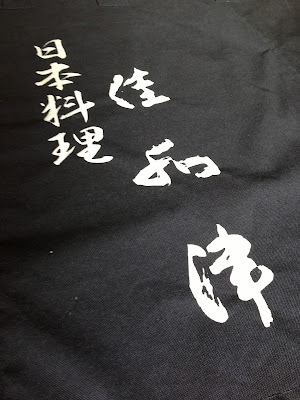 日本料理
佳和津